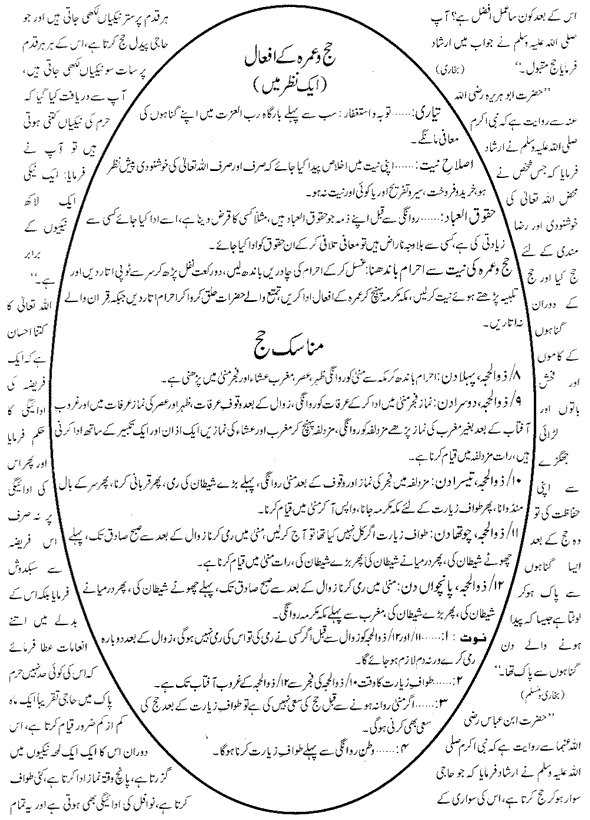 اس کے بعد کون سا عمل افضل ہے؟ آپ
صلی اللہ علیہ وسلم نے جواب میں ارشاد
فرمایا حج مقبول۔‘‘ (بخاری)
’’حضرت ابوہریرہ رضی اللہ
عنہ سے روایت ہے کہ نبی اکرم
صلی اللہ علیہ وسلم نے ارشاد
فرمایا کہ جس شخص نے
محض اللہ تعالیٰ کی
خوشنودی اور رضا
مندی کے لئے
حج کیا اور حج
کے دوران
گناہوں
کے کاموں
اور فحش
باتوں اور
لڑائی
جھگڑے
سے اپنی
حفاظت کی تو
وہ حج کے بعد
ایسا گناہوں
سے پاک ہوکر
لوٹتا ہے جیسا کہ پیدا
ہونے والے دن
گناہوں سے پاک تھا۔‘‘
(بخاری؛ مسلم)
’’حضرت ابن عباس رضی
اللہ عنہما سے روایت ہے کہ نبی اکرم صلی
اللہ علیہ وسلم نے ارشاد فرمایا کہ جو حاجی
سوار ہوکر حج کرتا ہے، اس کی سواری کے
حج و عمرہ کے افعال
(ایک نظر میں)
تیاری:......توبہ و استغفار: سب سے پہلے بارگاہ رب العزت میں اپنے گناہوں کی
معافی مانگے۔
اصلاح نیت:......اپنی نیت میں اخلاص پیدا کیا جائے کہ صرف اور صرف اللہ تعالیٰ کی خوشنودی پیش نظر
ہو، خرید و فروخت، سیر و تفریح اور ریا کوئی اور نیت نہ ہو۔
حقوق العباد:......روانگی سے قبل اپنے ذمہ جو حقوق العباد ہیں، مثلاً کسی کا قرض دینا ہے، اسے ادا کیا جائے کسی سے
زیادتی کی ہے، کسی سے بلاوجہ ناراض ہیں تو معافی تلافی کرکے ان حقوق کو ادا کیا جائے۔
حج و عمرہ کی نیت سے احرام باندھنا: غسل کرکے احرام کی چادریں باندھ لیں، دو رکعت نفل پڑھ کر سر سے ٹوپی اتار دیں اور
تلبیہ پڑھتے ہوئے نیت کرلیں، مکہ مکرمہ پہنچ کر عمرہ کے افعال ادا کریں، تمتع والے حضرات حلق کرواکر احرام اتار دیں جبکہ قران والے
نہ اتاریں۔
مناسک حج
۸/ذوالحجہ، پہلا دن: احرام باندھ کر مکہ سے منیٰ کو روانگی ظہر، عصر، مغرب، عشاء اور فجر منیٰ میں پڑھنی ہے۔
۹/ذوالحجہ، دوسرا دن: نماز فجر منیٰ میں ادا کرکے عرفات کو روانگی، زوال کے بعد وقوف عرفات، ظہر اور عصر کی نماز عرفات میں اور غروب
آفتاب کے بعد بغیر مغرب کی نماز پڑھے مزدلفہ کو روانگی، مزدلفہ پہنچ کر مغرب اور عشاء کی نمازیں ایک اذان اور ایک تکبیر کے ساتھ ادا کرنی
ہیں، رات مزدلفہ میں قیام کرنا ہے۔
۱۰/ذوالحجہ، تیسرا دن: مزدلفہ میں فجر کی نماز اور وقوف کے بعد منیٰ روانگی، پہلے بڑے شیطان کی رمی، پھر قربانی کرنا، پھر سر کے بال
منڈوانا، پھر طواف زیارت کے لئے مکہ مکرمہ جانا، واپس آکر منیٰ میں قیام کرنا۔
۱۱/ذوالحجہ، چوتھا دن: طواف زیارت اگر کل نہیں کیا تھا تو آج کرلیں، منیٰ میں رمی کرنا زوال کے بعد سے صبح صادق تک، پہلے
چھوٹے شیطان کی، پھر درمیانے کی پھر بڑے شیطان کی، رات منیٰ میں قیام کرنا ہے۔
۱۲/ذوالحجہ، پانچواں دن: منیٰ میں رمی کرنا زوال کے بعد سے صبح صادق تک، پہلے چھوٹے شیطان کی، پھر درمیانے
شیطان کی، پھر بڑے شیطان کی، مغرب سے پہلے مکہ مکرمہ روانگی۔
نوٹ :۱......۱۱/اور ۱۲/ذوالحجہ کو زوال سے قبل اگر کسی نے رمی کی تو اس کی رمی نہیں ہوگی، زوال کے بعد دوبارہ
رمی کرے ورنہ دم لازم ہوجائے گا۔
۲:......طواف زیارت کا وقت ۱۰/ذوالحجہ کی فجر سے ۱۲/ذوالحجہ کے غروب آفتاب تک ہے۔
۳:......اگر منیٰ روانہ ہونے سے قبل حج کی سعی نہیں کی ہے تو طواف زیارت کے بعد حج کی
سعی بھی کرنی ہوگی۔
۴:......وطن روانگی سے پہلے طواف زیارت کرنا ہوگا۔
ہر قدم پر ستر نیکیاں لکھی جاتی ہیں اور جو
حاجی پیدل حج کرتا ہے، اس کے ہر قدم
پر سات سو نیکیاں لکھی جاتی ہیں،
آپ سے دریافت کیا گیا کہ
حرم کی نیکیاں کتنی ہوتی
ہیں تو آپ نے
فرمایا: ایک نیکی
ایک لاکھ
نیکیوں کے
برابر
ہے۔‘‘
اللہ تعالیٰ کا
کتنا احسان
ہے کہ ایک
فریضہ کی
ادائیگی کا
حکم فرمایا
اور پھر اس
کی ادائیگی
پر نہ صرف
اس فریضہ
سے سبکدوش
فرمایا بلکہ اس کے
بدلے میں اتنے
انعامات عطا فرمائے
کہ اس کی کوئی حد نہیں حرم
پاک میں حاجی تقریباً ایک ماہ
کم از کم ضرور قیام کرتا ہے، اس
دوران اس کا ایک ایک لمحہ نیکیوں میں
گزرتا ہے، پانچ وقتہ نماز ادا کرتا ہے، کئی طواف
کرتا ہے، نوافل کی ادائیگی بھی ہوتی ہے اور یہ تمام